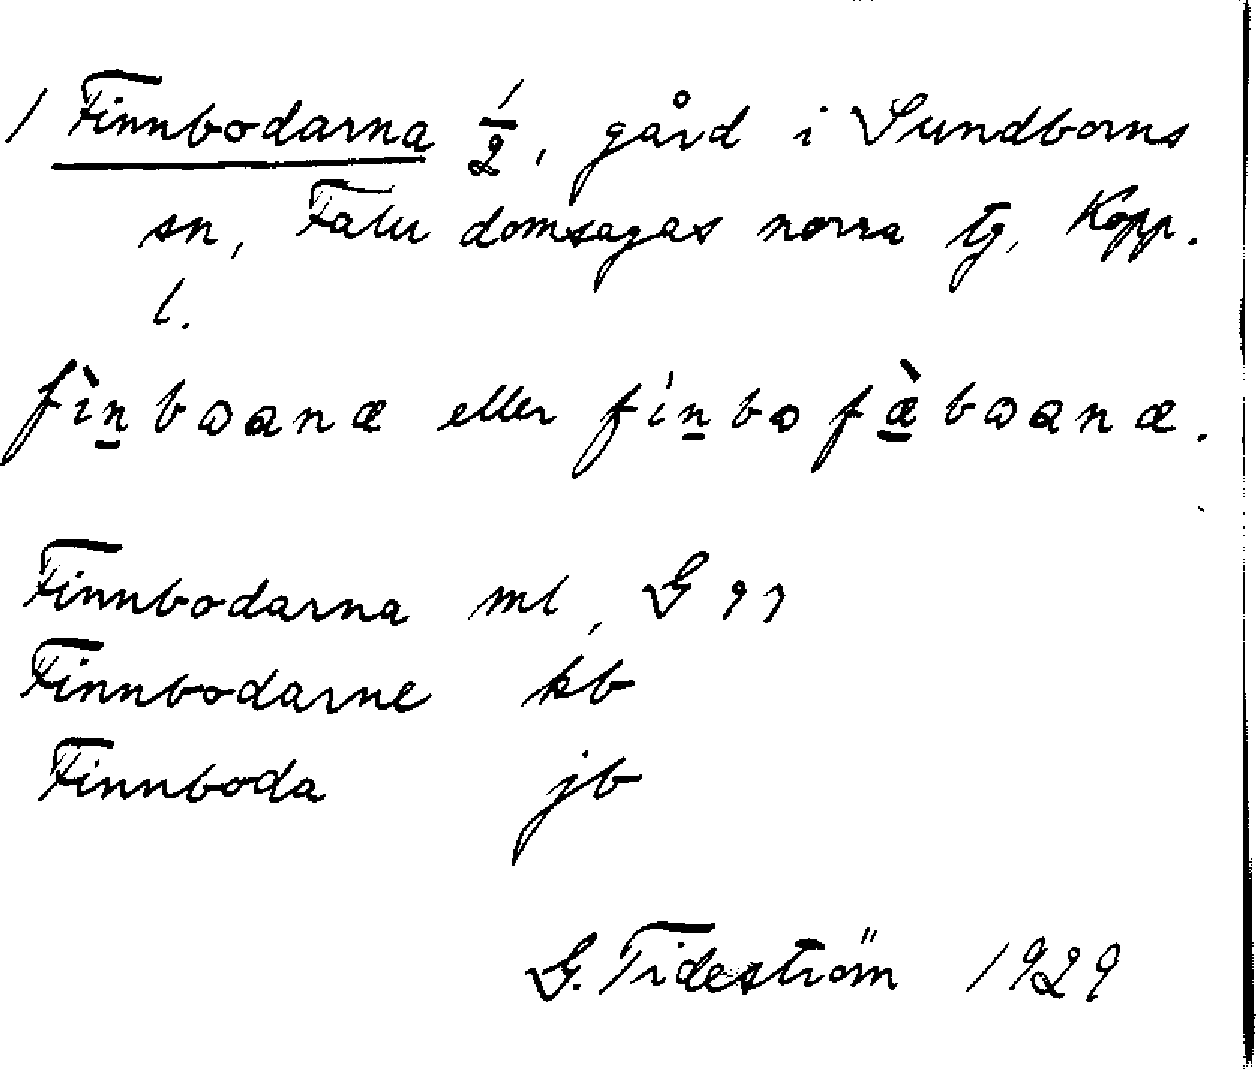 / Finnbodarna 1/2, gård i Sundborns
sn, Falu domsagas norra tg, Kopp.
l.
fìn̲boanæ eller fín̲bofæ̲̀boanæ.
Finnbodarna ml, G 99
Finnbodarne kb
Finnboda jb
G. Tideström 1929